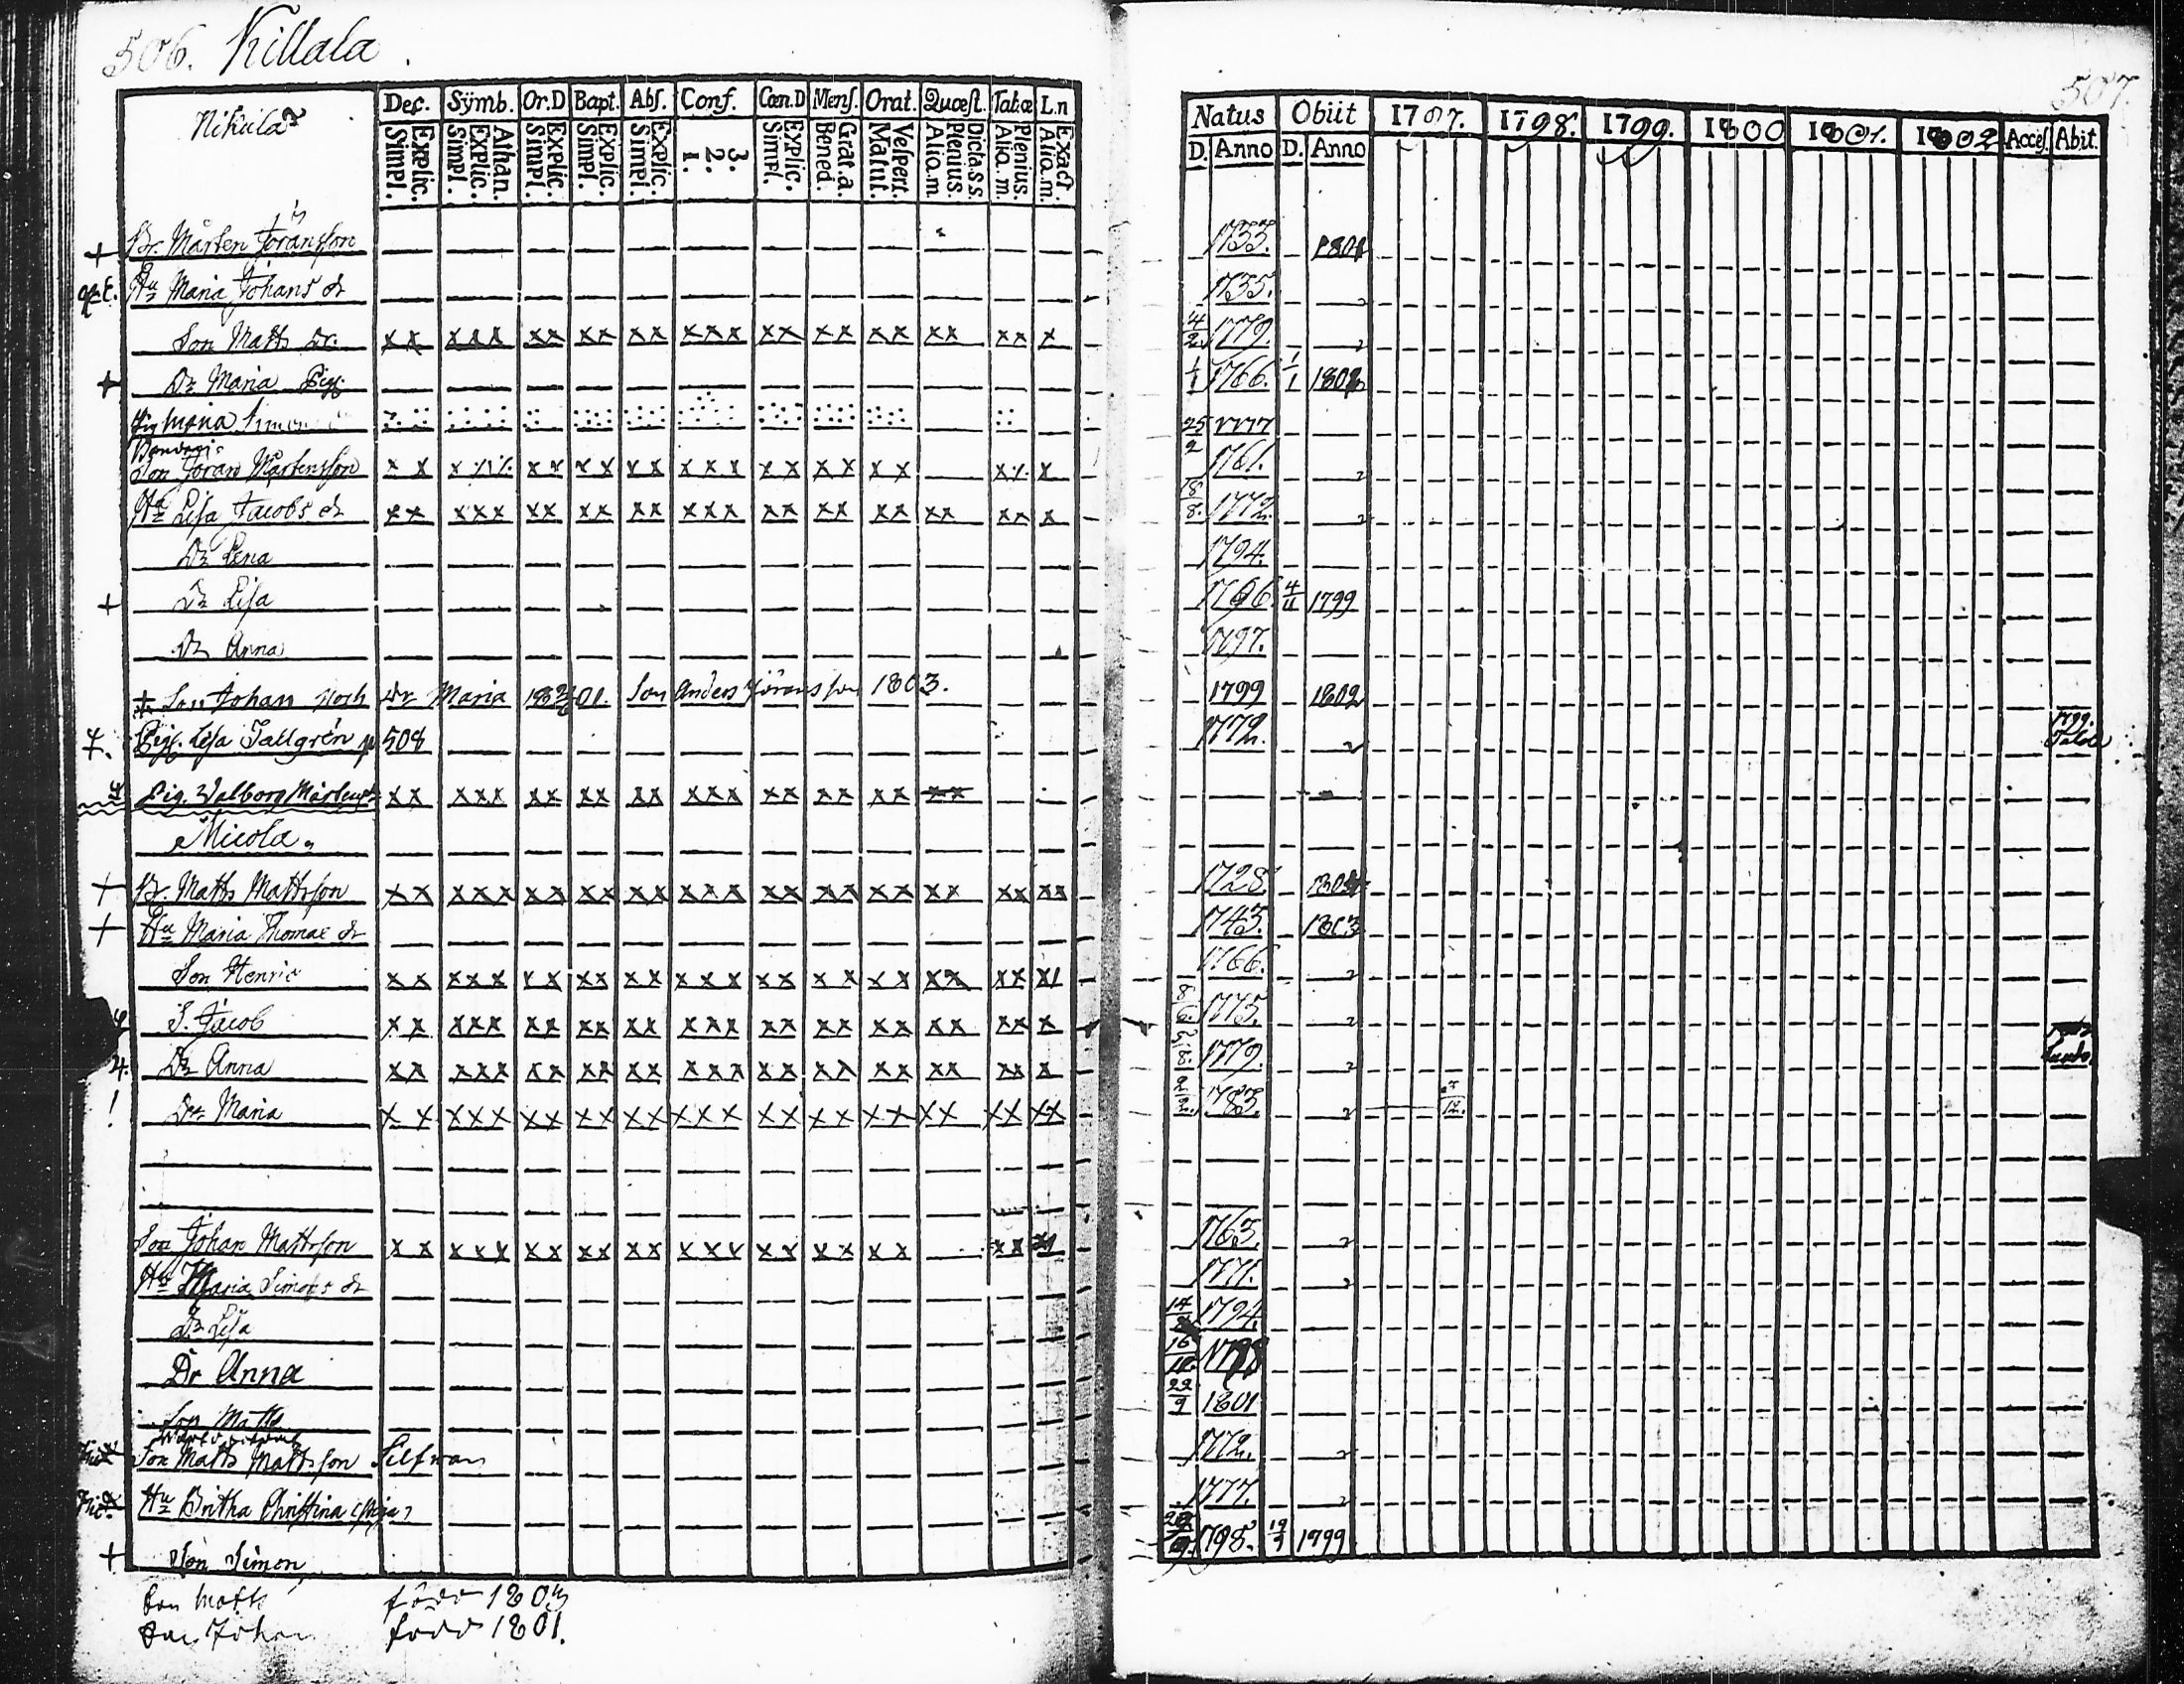 506. Killala
Nikula
Dec. Sÿmb. Or.D Bapt. Abſ. Conf. Cœn.D Menſ. Orat. Quœſt. Tab:œ L.n
Explic. Simpl. Athan. Explic. Simpl. Explic. Simpl. Explic. Simpl. Explic. Simpl. 3. 2. 1. Explic. Simpl. Grat. a. Bened. Veſpert. Matut. Dicta.s.s. Plenius. Alio.m. Plenius. Alio.m. Exact. Alio.m.
+ Br. Mårten Jöransſon
Hu Maria Johans dr
Son Matts
+ Dr Maria Pig.
Maria Simons
Son Jöran Mårtensſon
Hu Liſa Jacobs dr
Dr Lena
+ Dr Liſa
Dr Anna
+ Son Johan Dr Maria 1801. Son Anders Jöransſon 1803.
Pig. Liſa Tallgrén p 508
Pig. Walborg Mårtensdr
Micola
+ Br. Matts Mattsſon
+ Hu Maria Thomæ dr
Son Henric
S. Jacob
4. Dr Anna
! Dr Maria
Son Johan Mattsſon
Hu Maria Simons dr
Dr Liſa
Dr Anna
Son Matts
Son Matts Mattsſon Silfwan
Hu Britha Chriſtina
+ Son Simon
Son Matts född 1803
Son Johan född 1801.
507.
Natus Obiit 1797. 1798. 1799. 1800 1801. 1802 Acceſ. Abit.
D. Anno D. Anno
1733. 1801
1735.
4/2. 1779.
1/1 1766. 1/1 1802
25/2 1777
1761.
18/8. 1772.
1794.
1796. 4/11 1799
1797.
1799 1802
1772. 1799.
1728. 180
1743. 1803
1766.
8/6. 1775.
3/8. 1779.
2/2. 1783. /12.
1763.
1771.
14/ 1794.
16/10. 1798
22/9 1801
1772.
1777.
1798. 19/9 1799